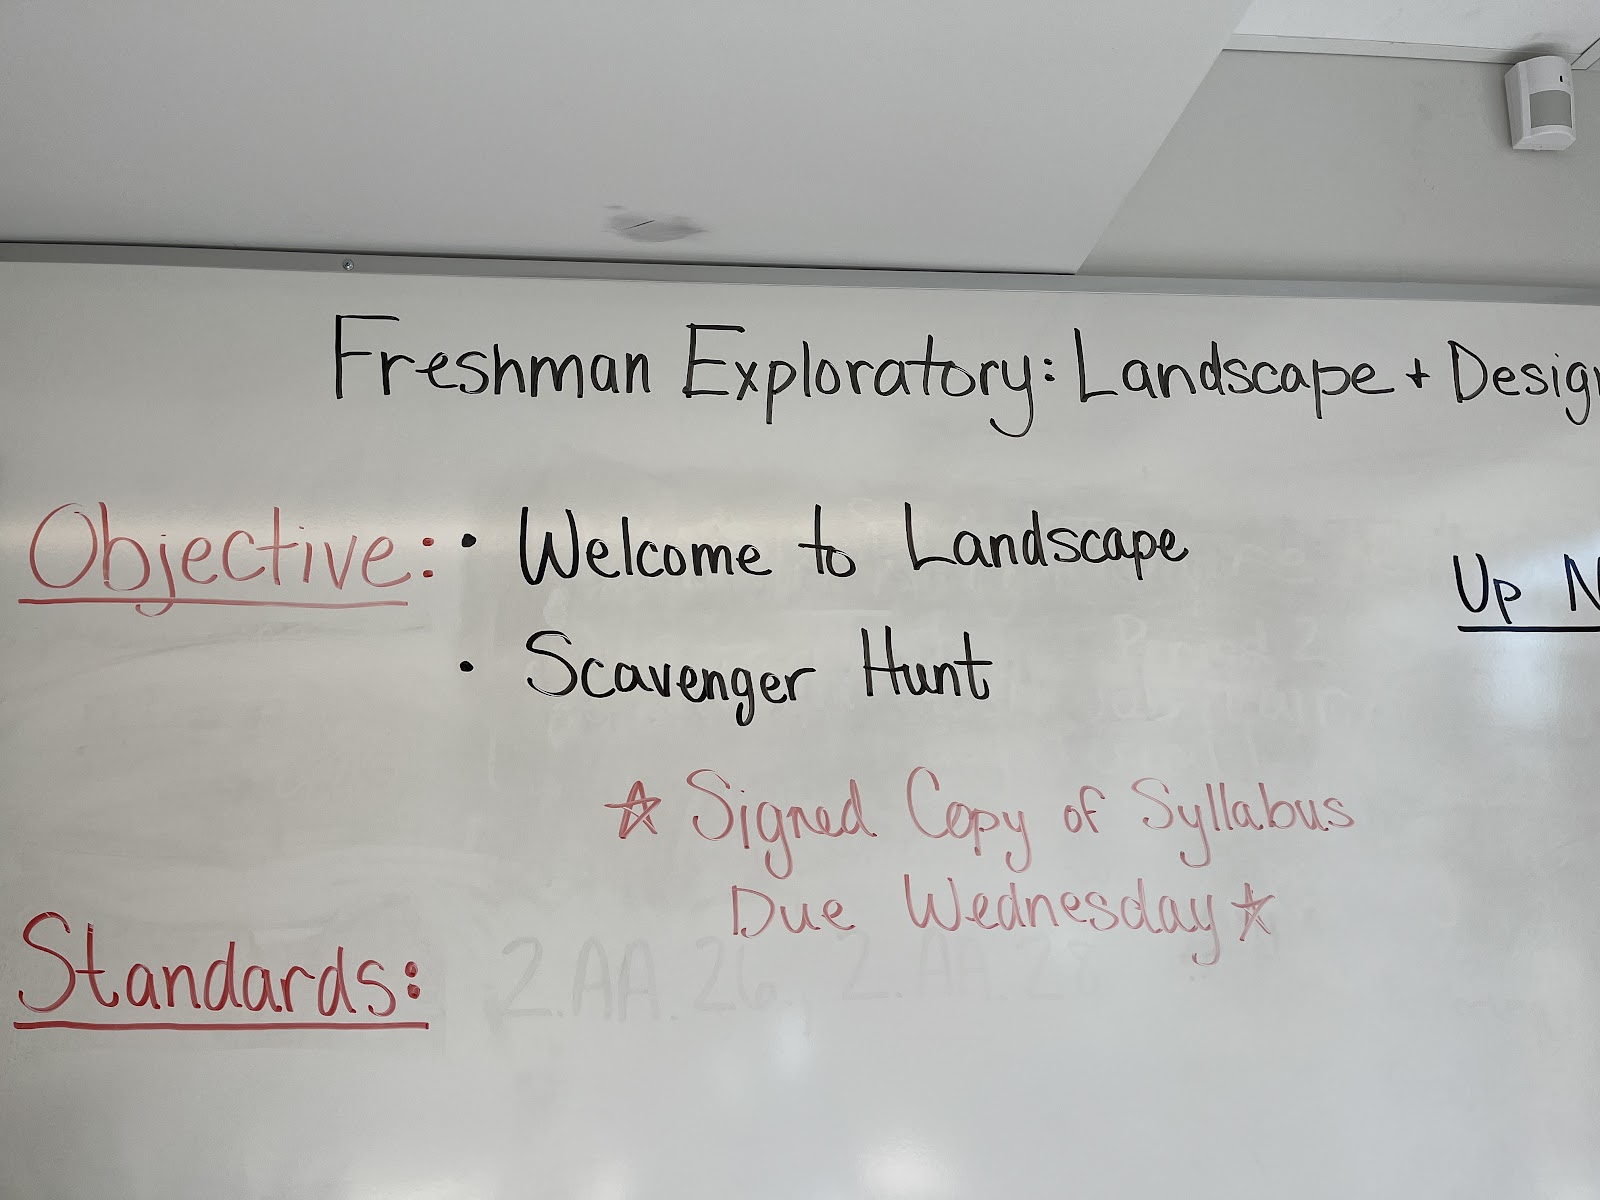 Freshman Exploratory: Landscape + Design
Objective: • Welcome to Landscape
• Scavenger Hunt
Up N
☆ Signed Copy of Syllabus
Due Wednesday ☆
Standards: 2.AA.26, 2.AA.28
Period 2